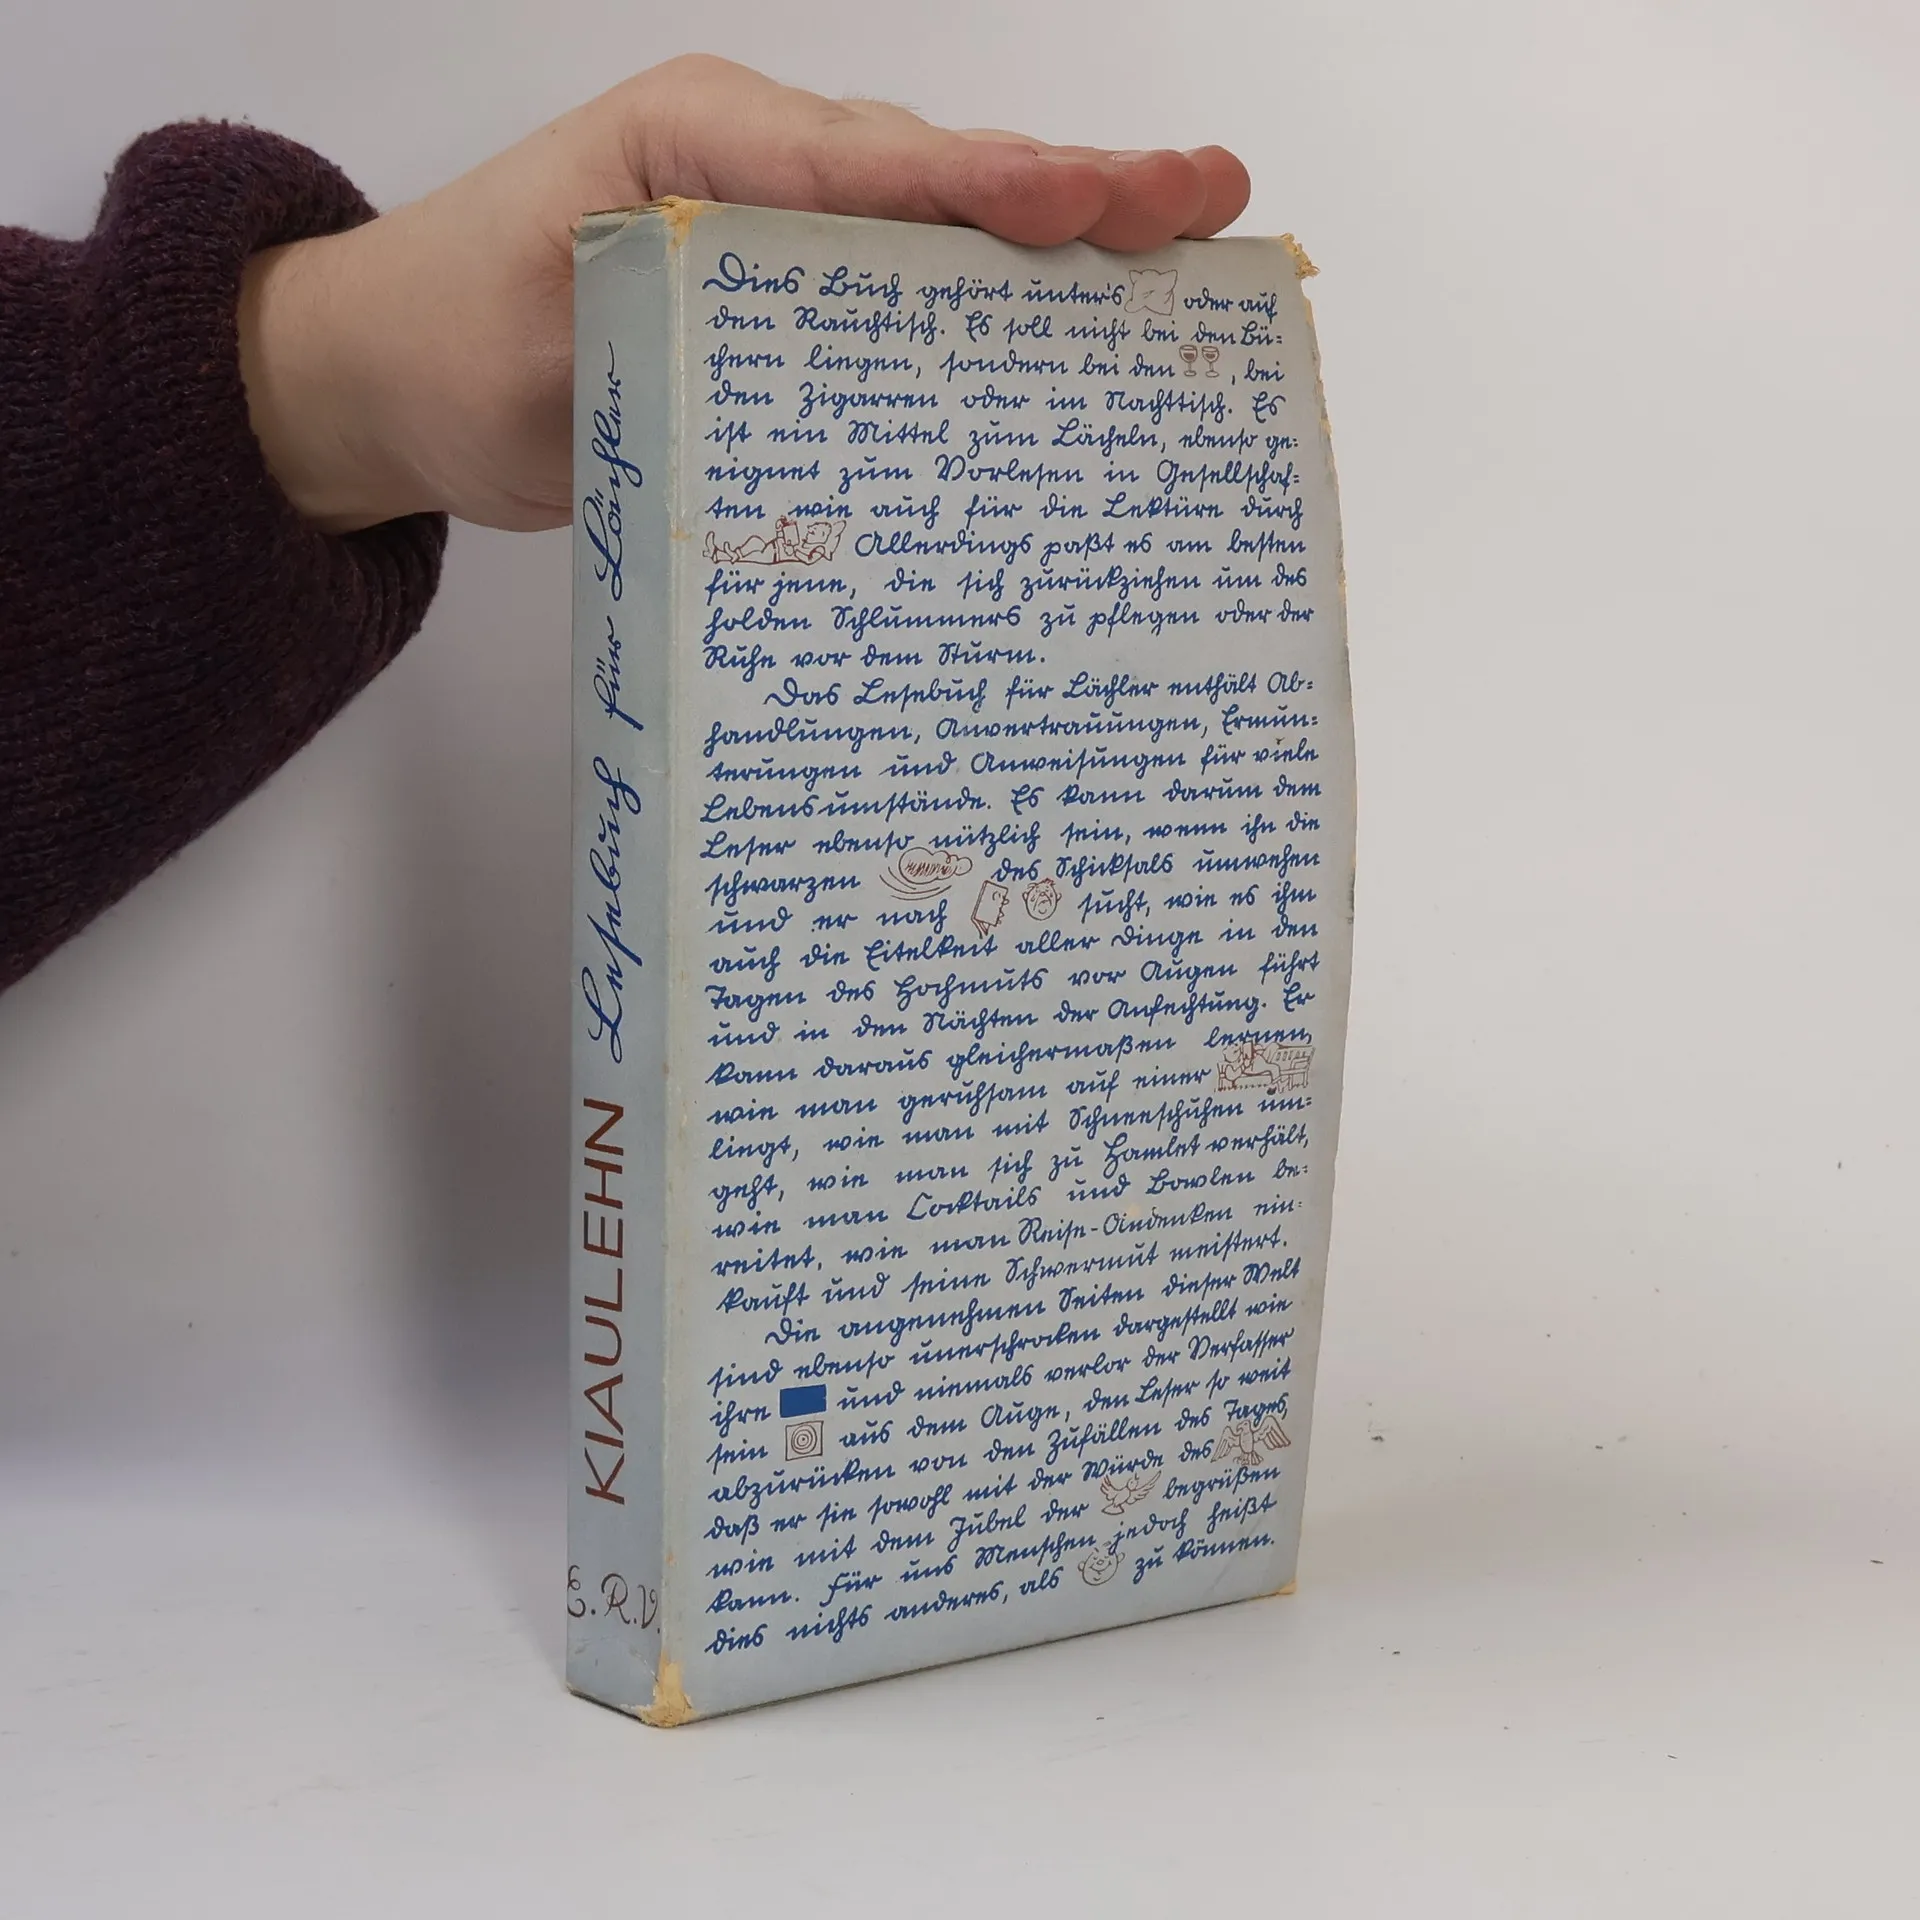 Lesebuch für Lächler
KIAULEHN
E.R.V.
Dies Buch gehört unter's oder auf
den Rauchtisch. Es soll nicht bei den Bü=
chern liegen, sondern bei den , bei
den Zigarren oder im Nachttisch. Es
ist ein Mittel zum Lächeln, ebenso ge=
eignet zum Vorlesen in Gesellschaf=
ten wie auch für die Lektüre durch
Allerdings paßt es am besten
für jene, die sich zurückziehen um des
holden Schlummers zu pflegen oder der
Ruhe vor dem Sturm.
Das Lesebuch für Lächler enthält Ab=
handlungen, Anvertrauungen, Ermun=
terungen und Anweisungen für viele
Lebensumstände. Es kann darum dem
Leser ebenso nützlich sein, wenn ihn die
schwarzen des Schicksals umwehen
und er nach sucht, wie es ihm
auch die Eitelkeit aller Dinge in den
Tagen des Hochmuts vor Augen führt
und in den Nächten der Anfechtung. Er
kann daraus gleichermaßen lernen,
wie man geruhsam auf einer
liegt, wie man mit Schneeschuhen um=
geht, wie man sich zu Hamlet verhält,
wie man Cocktails und Bowlen be=
reitet, wie man Reise-Andenken ein=
kauft und seine Schwermut meistert.
Die angenehmen Seiten dieser Welt
sind ebenso unerschrocken dargestellt wie
ihre und niemals verlor der Verfasser
sein aus dem Auge, den Leser so weit
abzurücken von den Zufällen des Tages,
daß er sie sowohl mit der Würde des
wie mit dem Jubel der begrüßen
kann. Für uns Menschen jedoch heißt
dies nichts anderes, als zu können.